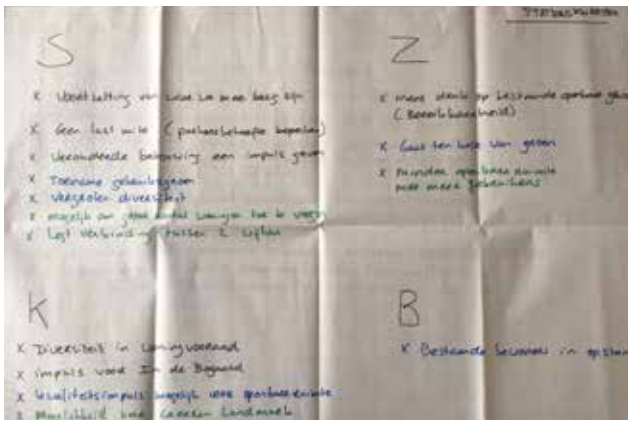 S
x Voortzetting van waar we mee bezig zijn
x Geen last mile (parkeerbehoefte beperken)
x Verouderde bebouwing een impuls geven
x Toename gebruiksgroen
x Vergroten diversiteit
x mogelijk om groot aantal woningen toe te voegen
x Legt verbinding tussen 2 wijken
Z
x meer druk op bestaande openbare
(Bereikbaarheid)
x Gaat ten koste van groen
x minder openbare ruimte
met meer gebruikers
K
x Diversiteit in woningvoorraad
x impuls voor In de Bogaard
x kwaliteitsimpuls mogelijk voor openbare ruimte
x Mogelijkheid voor Landmark
B
x Bestaande bewoners in